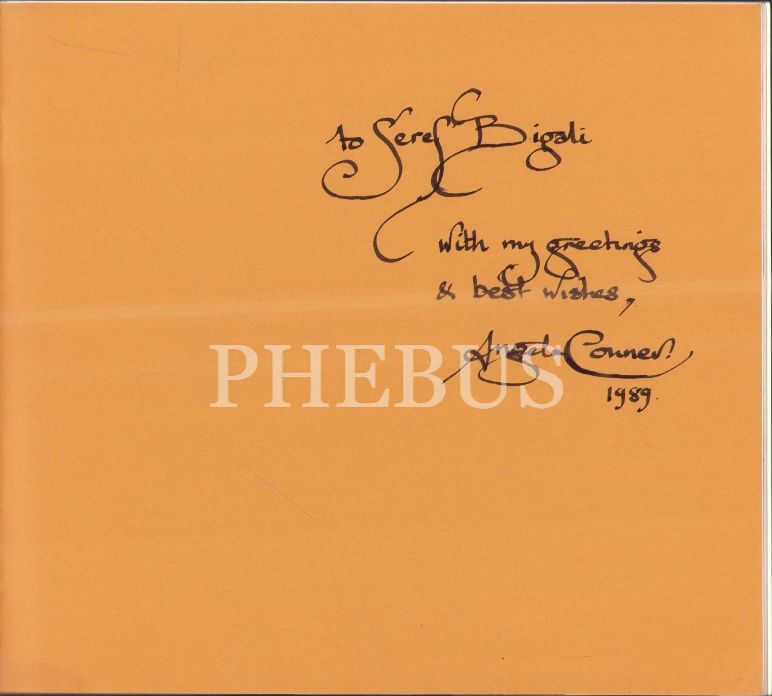 to Seref Bigali
with my greetings
& best wishes,
Angela Conner.
PHEBUS
1989.